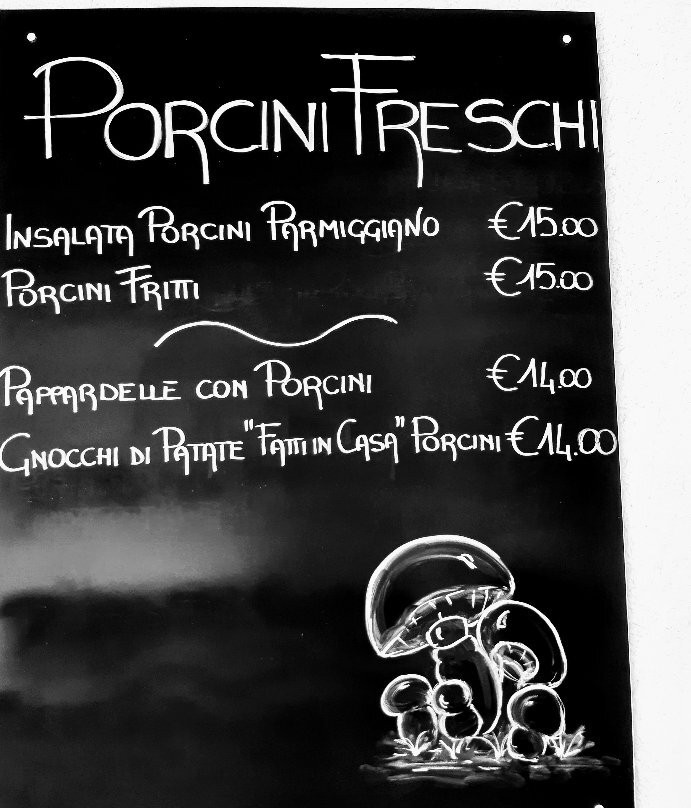 PORCINI FRESCHI
INSALATA PORCINI PARMIGGIANO €15.00
PORCINI FRITTI €15.00
PAPPARDELLE CON PORCINI €14.00
GNOCCHI DI PATATE "FATTI IN CASA" PORCINI €14.00